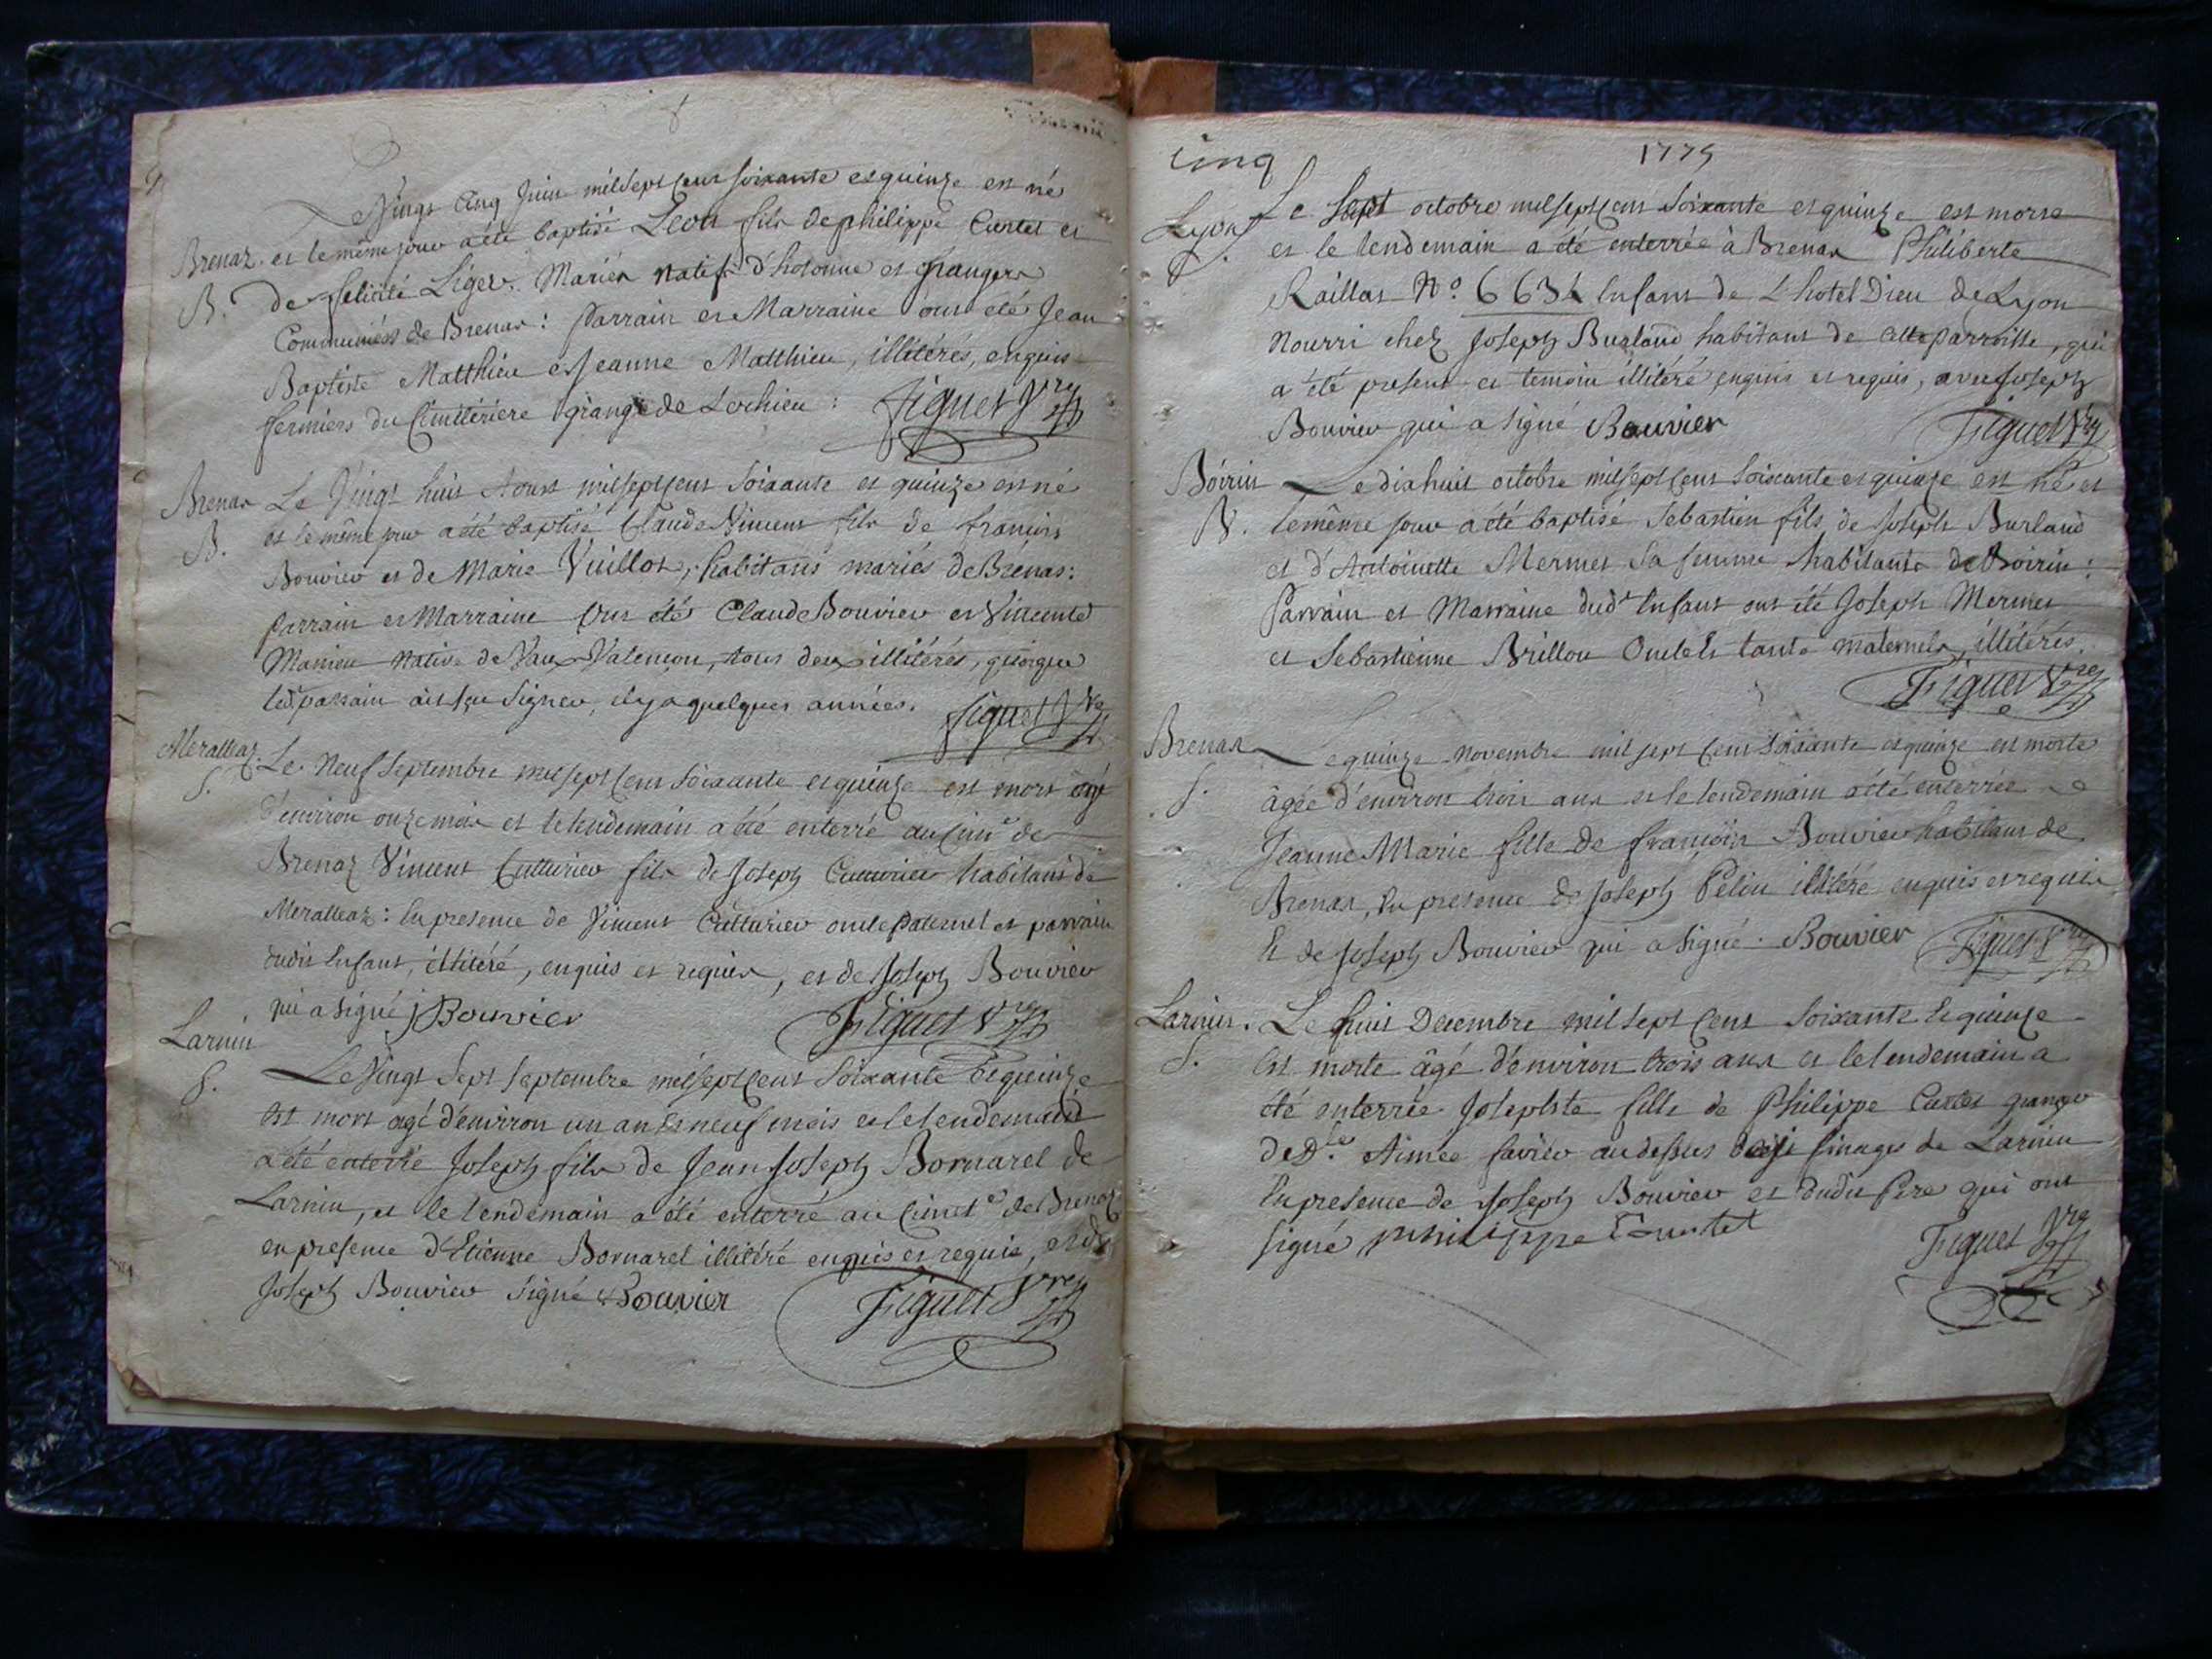 Le Vingt Cinq Juin mil sept cent soixante et quinze est né
Brenaz et le même jour a été baptisé Léon fils de philippe Curtet et
B. de felicité Liger. Mariés natifs d'hotonne et grangers
Communiés de Brenas : Parrain et Marraine ont été Jean
Baptiste Matthieu et Jeanne Matthieu, illitérés, enquis
fermiers du grange de Lochieu : Figuet Vre
Brenas Le Vingt huit Aoust mil sept cent soixante et quinze est né
B. et le même jour a été baptisé Claude Vincent fils de françois
Bouvier et de Marie Vuillot, habitans mariés de Brénas :
parrain et Marraine Ont été Claude Bouvier et Vincente
Manieu Native de Vaux Valençon, tous deux illitérés, quoique
led. parrain ait sçu signer, il y a quelques années. Figuet Vre
Meraleaz. Le Neuf Septembre mil sept cent soixante et quinze est mort âgé
S. d'environ onze mois et le lendemain a été enterré au Cime de
Brenaz Vincent Cutturier fils de Joseph Cutturier habitans de
Meraleaz : En presence de Vincent Cutturier oncle Paternel et parrain
dudit Enfant, illitéré, enquis et requis, et de Joseph Bouvier
qui a signé J Bouvier Figuet Vre
Larnin
S. Le Vingt Sept septembre mil sept cent soixante et quinze
Est mort agé d'environ un an et neuf mois et le lendemain
a été enterré Joseph fils de Jean Joseph Bornarel de
Larnin, et le lendemain a été enterré au Cimete de Brenaz
en presence d'Etienne Bornarel illitéré enquis et requis, et de
Joseph Bouvier Signé Bouvier Figuet Vre
cinq 1775
Lyon Le Sept octobre mil sept cent soixante et quinze est morte
S. et le lendemain a été enterrée à Brenas Philiberte
Raillas No. 6634 Enfant de L'hotel Dieu de Lyon
Nourri chez Joseph Burland habitant de cette parroisse, qui
a été present et temoin illitéré enquis et requis, avec Joseph
Bouvier qui a signé Bouvier Figuet Vre
Boirin Le dix huit octobre mil sept cent soixante et quinze est né et
B. le même jour a été baptisé Sebastien fils de Joseph Burland
et d'Antoinette Mermet Sa femme habitants de Boirin :
Parrain et Marraine dudt Enfant ont été Joseph Mermet
et Sebastienne Brillon Oncle et tante maternels, illitérés.
Figuet Vre
Brenas Le quinze novembre mil sept cent soixante et quinze est morte
S. âgée d'environ trois ans et le lendemain a été enterrée
Jeanne Marie fille de françois Bouvier habitant de
Brenas, En presence de Joseph Pélin illitéré enquis et requis
Et de Joseph Bouvier qui a signé. Bouvier Figuet Vre
Larnin. Le huit Decembre mil sept cent soixante Et quinze
S. Est morte âgé d'environ trois ans et le lendemain a
été enterrée Josephte fille de Philippe Curtet granger
de Dle Aimée Savier au dessus finages de Larnin
En presence de Joseph Bouvier et dudit Pere qui ont
signé philippe Courtet Figuet Vre